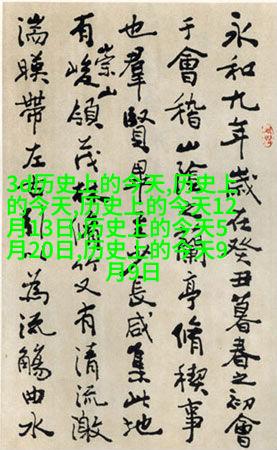 3d历史上的今天,历史上
的今天,历史上的今天12
月13日,历史上的今天5
月20日,历史上的今天9
月9日
永和九年歲在癸丑暮春之初會
于會稽山陰之蘭亭脩稧事
也羣賢畢至少長咸集此地
有崇山峻領茂林脩竹又有清流激
湍暎帶左右引以為流觴曲水